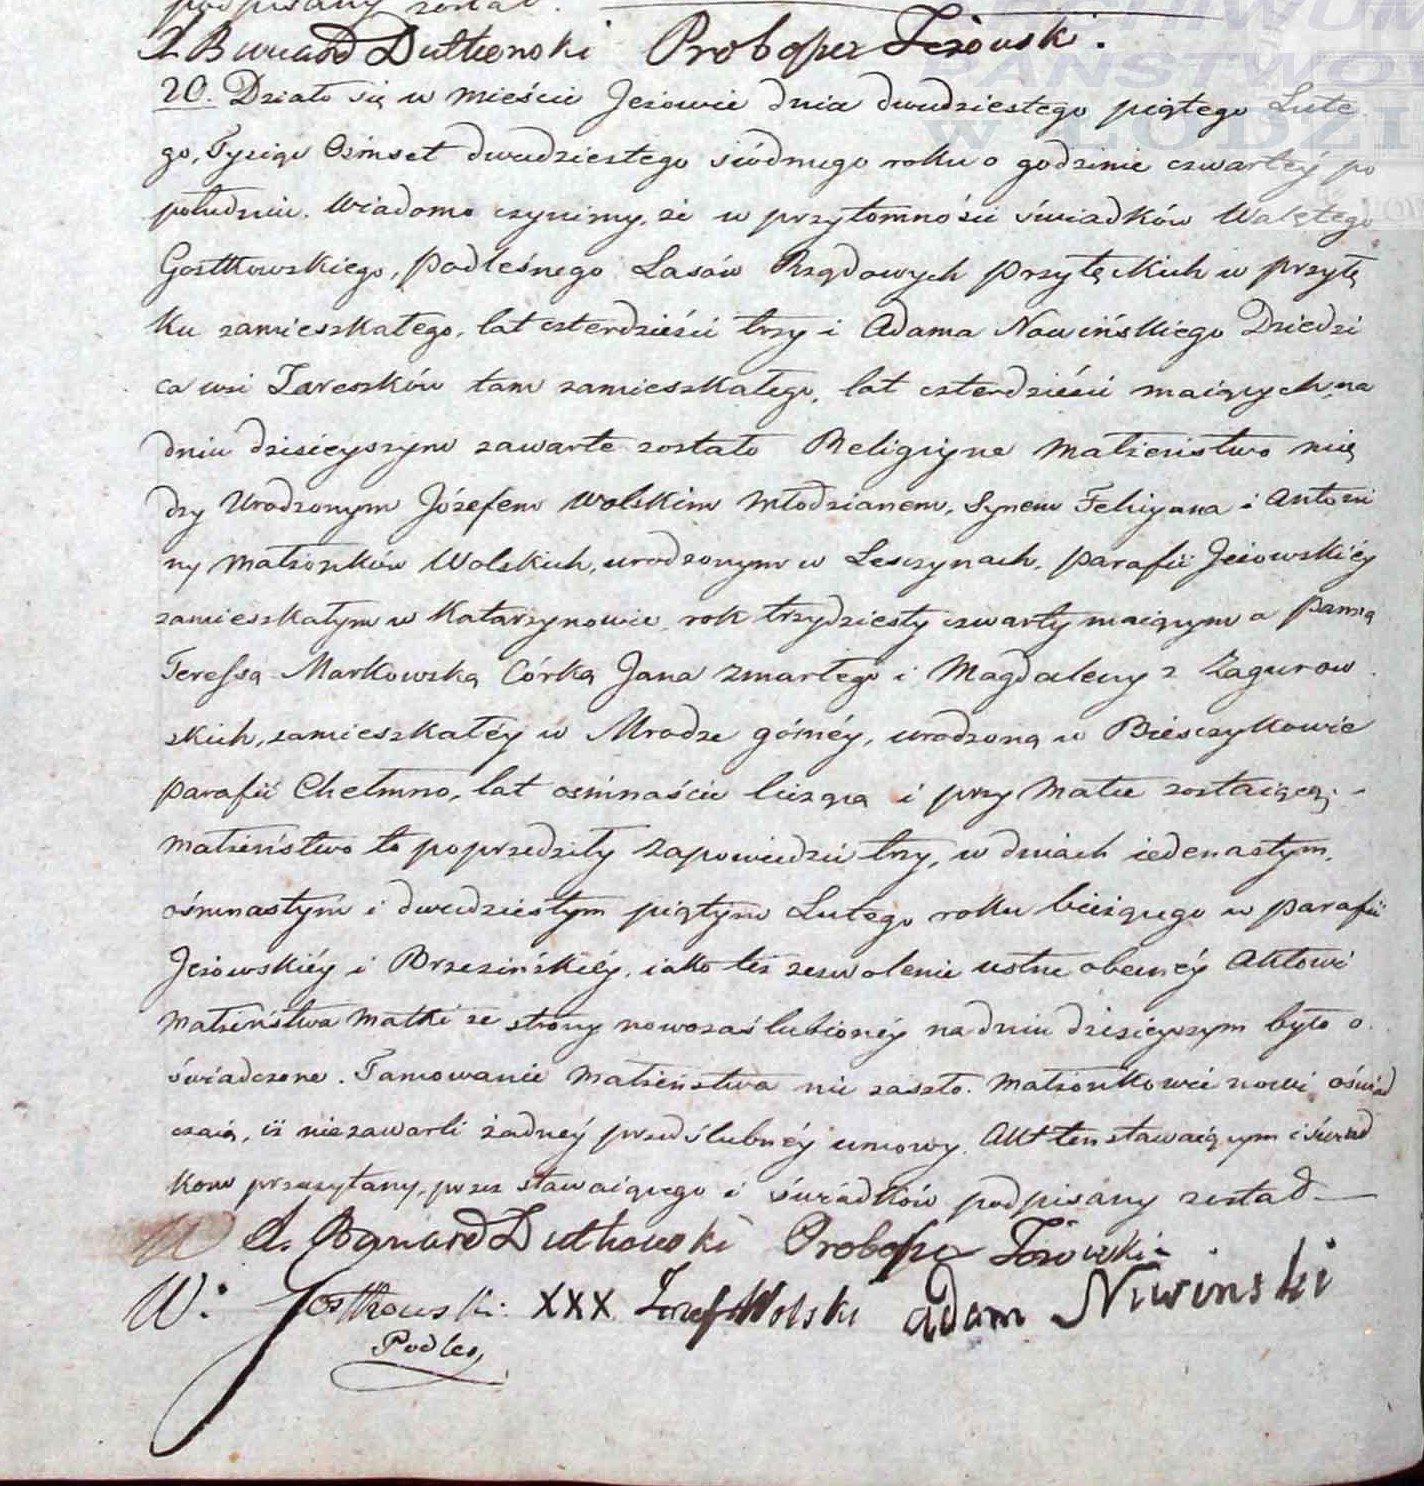 podpisany został.
X Bernard Dutkowski Proboszcz Jeżowski.
20. Działo się w mieście Jeżowie dnia dwudziestego piątego Lute
go, Tysiąc Ośmset dwudziestego siódmego roku o godzinie czwartéy po
południu. Wiadomo czynimy, że w przytomności świadków Walętego
Gostkowskiego, podleśnego Lasów Rządowych Przyłęckich w Przyłę
ku zamieszkałego, lat czterdzieści trzy i Adama Nowińskiego Dziedzi
ca wsi Jareszków tam zamieszkałego, lat czterdzieści maiących, na
dniu dzisieyszym zawarte zostało Religiyne Małżeństwo mię
dzy Urodzonym Józefem Wolskim Młodzianem, Synem Felicyana i Antoni
ny Małżonków Wolskich, urodzonym w Lesczynach, parafii Jeżowskiéy
zamieszkałym w Katarzynowie, rok trzydziesty czwarty maiącym a Panną
Teressą Markowską Córką Jana zmarłego i Magdaleny z Zagurow
skich, zamieszkałéy w Mrodze górnéy, urodzoną w Biesczykowie
parafii Chełmno, lat ośmnaście liczącą i przy Matce zostaiącą;
Małżeństwo to poprzedziły Zapowiedzie trzy, w dniach iedenastym,
ośmnastym i dwudziestym piątym Lutego roku bieżącego w parafii
Jeżowskiéy i Brzezińskiéy, iako też zezwolenie ustne obecnéy Aktowi
Małżeństwa Matki ze strony nowozaślubionéy na dniu dzisieyszym było o
świadczone. Tamowanie Małżeństwa nie zaszło. Małżonkowie nowi oświad
czaią, iż niezawarli żadnéy przedślubnéy umowy. Akt ten stawaiącym i świad
kom przeczytany, przez stawaiącego i świadków podpisany został
X. Bernard Dutkowski Proboszcz Jeżowski
W: Gostkowski XXX Jozef Wolski adam Niwinski
Podleś,
ARCHIWUM
PAŃSTWOWE
W ŁODZI